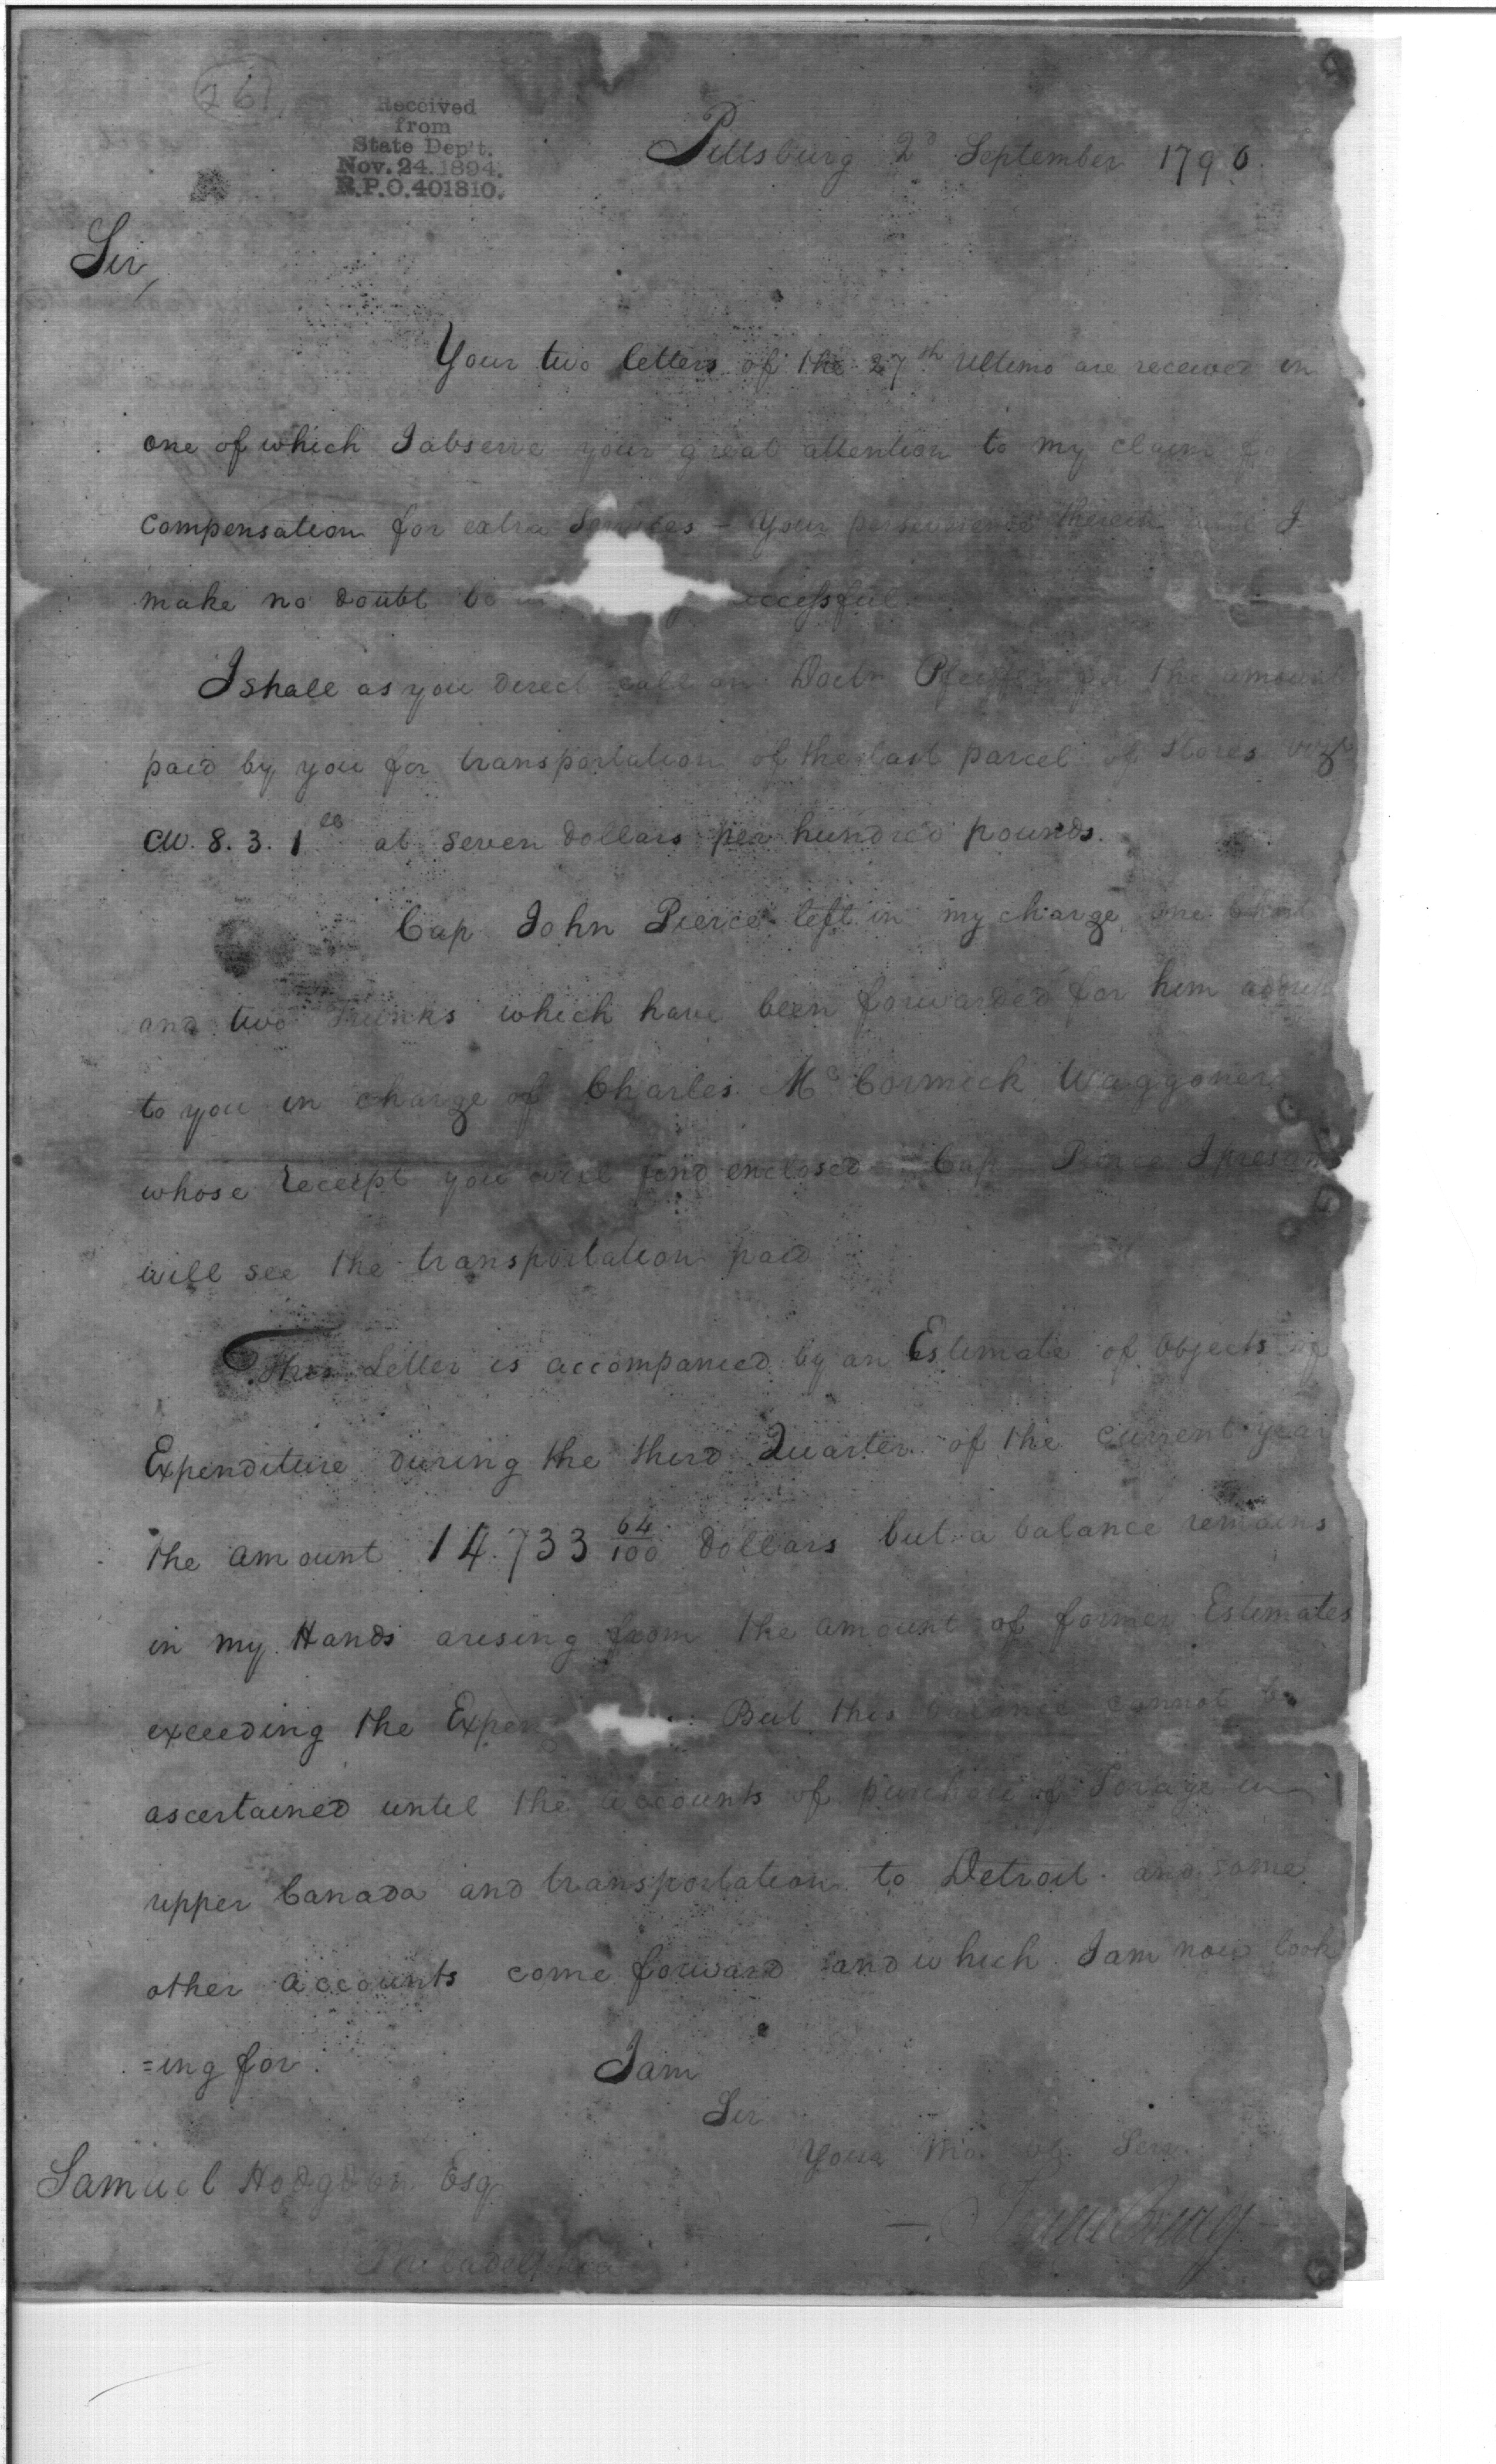 261
Received
from
State Dep't.
Nov. 24. 1894.
R.P.O. 401810.
Pittsburg 2d September 1796.
Sir,
Your two letters of the 27th Ultimo are received in
one of which I observe your great attention to my claim fo
Compensation for extra Services – Your perseverence therein I
make no doubt be ccessful.
I shall as you direct call on Doctr for the amount
paid by you for transportation of the last parcel of Stores vizt
CW. 8. 3. 1 lb at seven dollars per hundred pounds.
Cap John Pierce left in my charge one
and two Trunks which have been forwarded for him
to you in charge of Charles McCormick Waggoner
whose receipt you will find enclosed – Cap Pierce I presume
will see the transportation paid
This Letter is accompanied by an Estimate of Objects of
Expenditure during the third Quarter of the current year
the amount 14.733 64/100 dollars but a balance remains
in my Hands arising from the amount of former Estimates
exceeding the Expen But this balance cannot be
ascertained until the accounts of purchase of Forage in
upper Canada and transportation to Detroit and some
other accounts come forward and which I am now look
=ing for.
I am
Sir
Your Mo. Ob. Serv.
Samuel Hodgdon Esq
Isaac Craig
Philadelphia